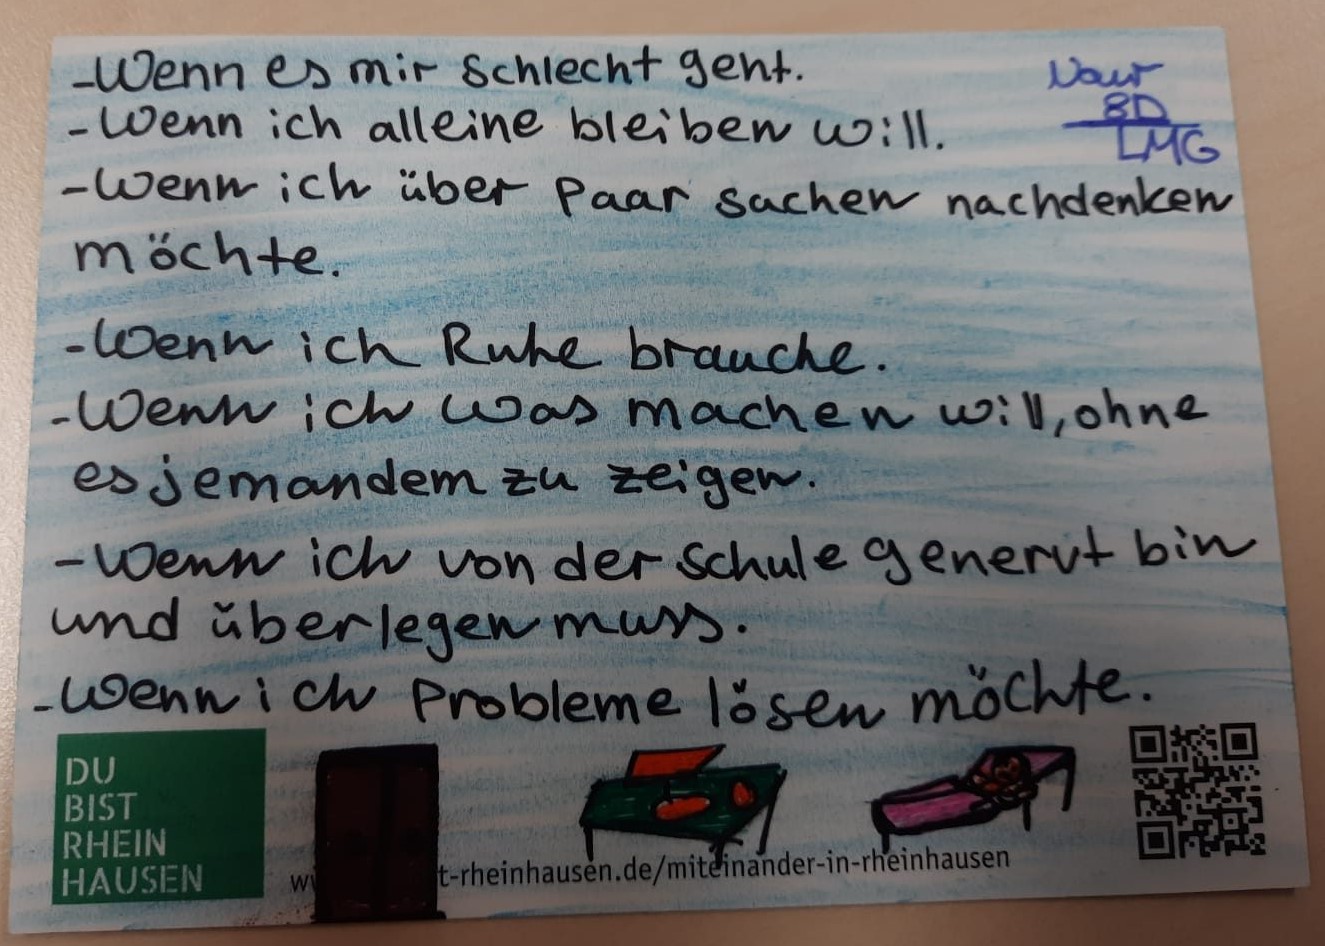 -Wenn es mir schlecht geht.
-Wenn ich alleine bleiben will.
-Wenn ich über Paar sachen nachdenken
möchte.
-Wenn ich Ruhe brauche.
-Wenn ich was machen will, ohne
es jemandem zu zeigen.
-Wenn ich von der schule genervt bin
und überlegen muss.
-Wenn ich Probleme lösen möchte.
Nour
8D
LMG
DU
BIST
RHEIN
HAUSEN
t-rheinhausen.de/miteinander-in-rheinhausen